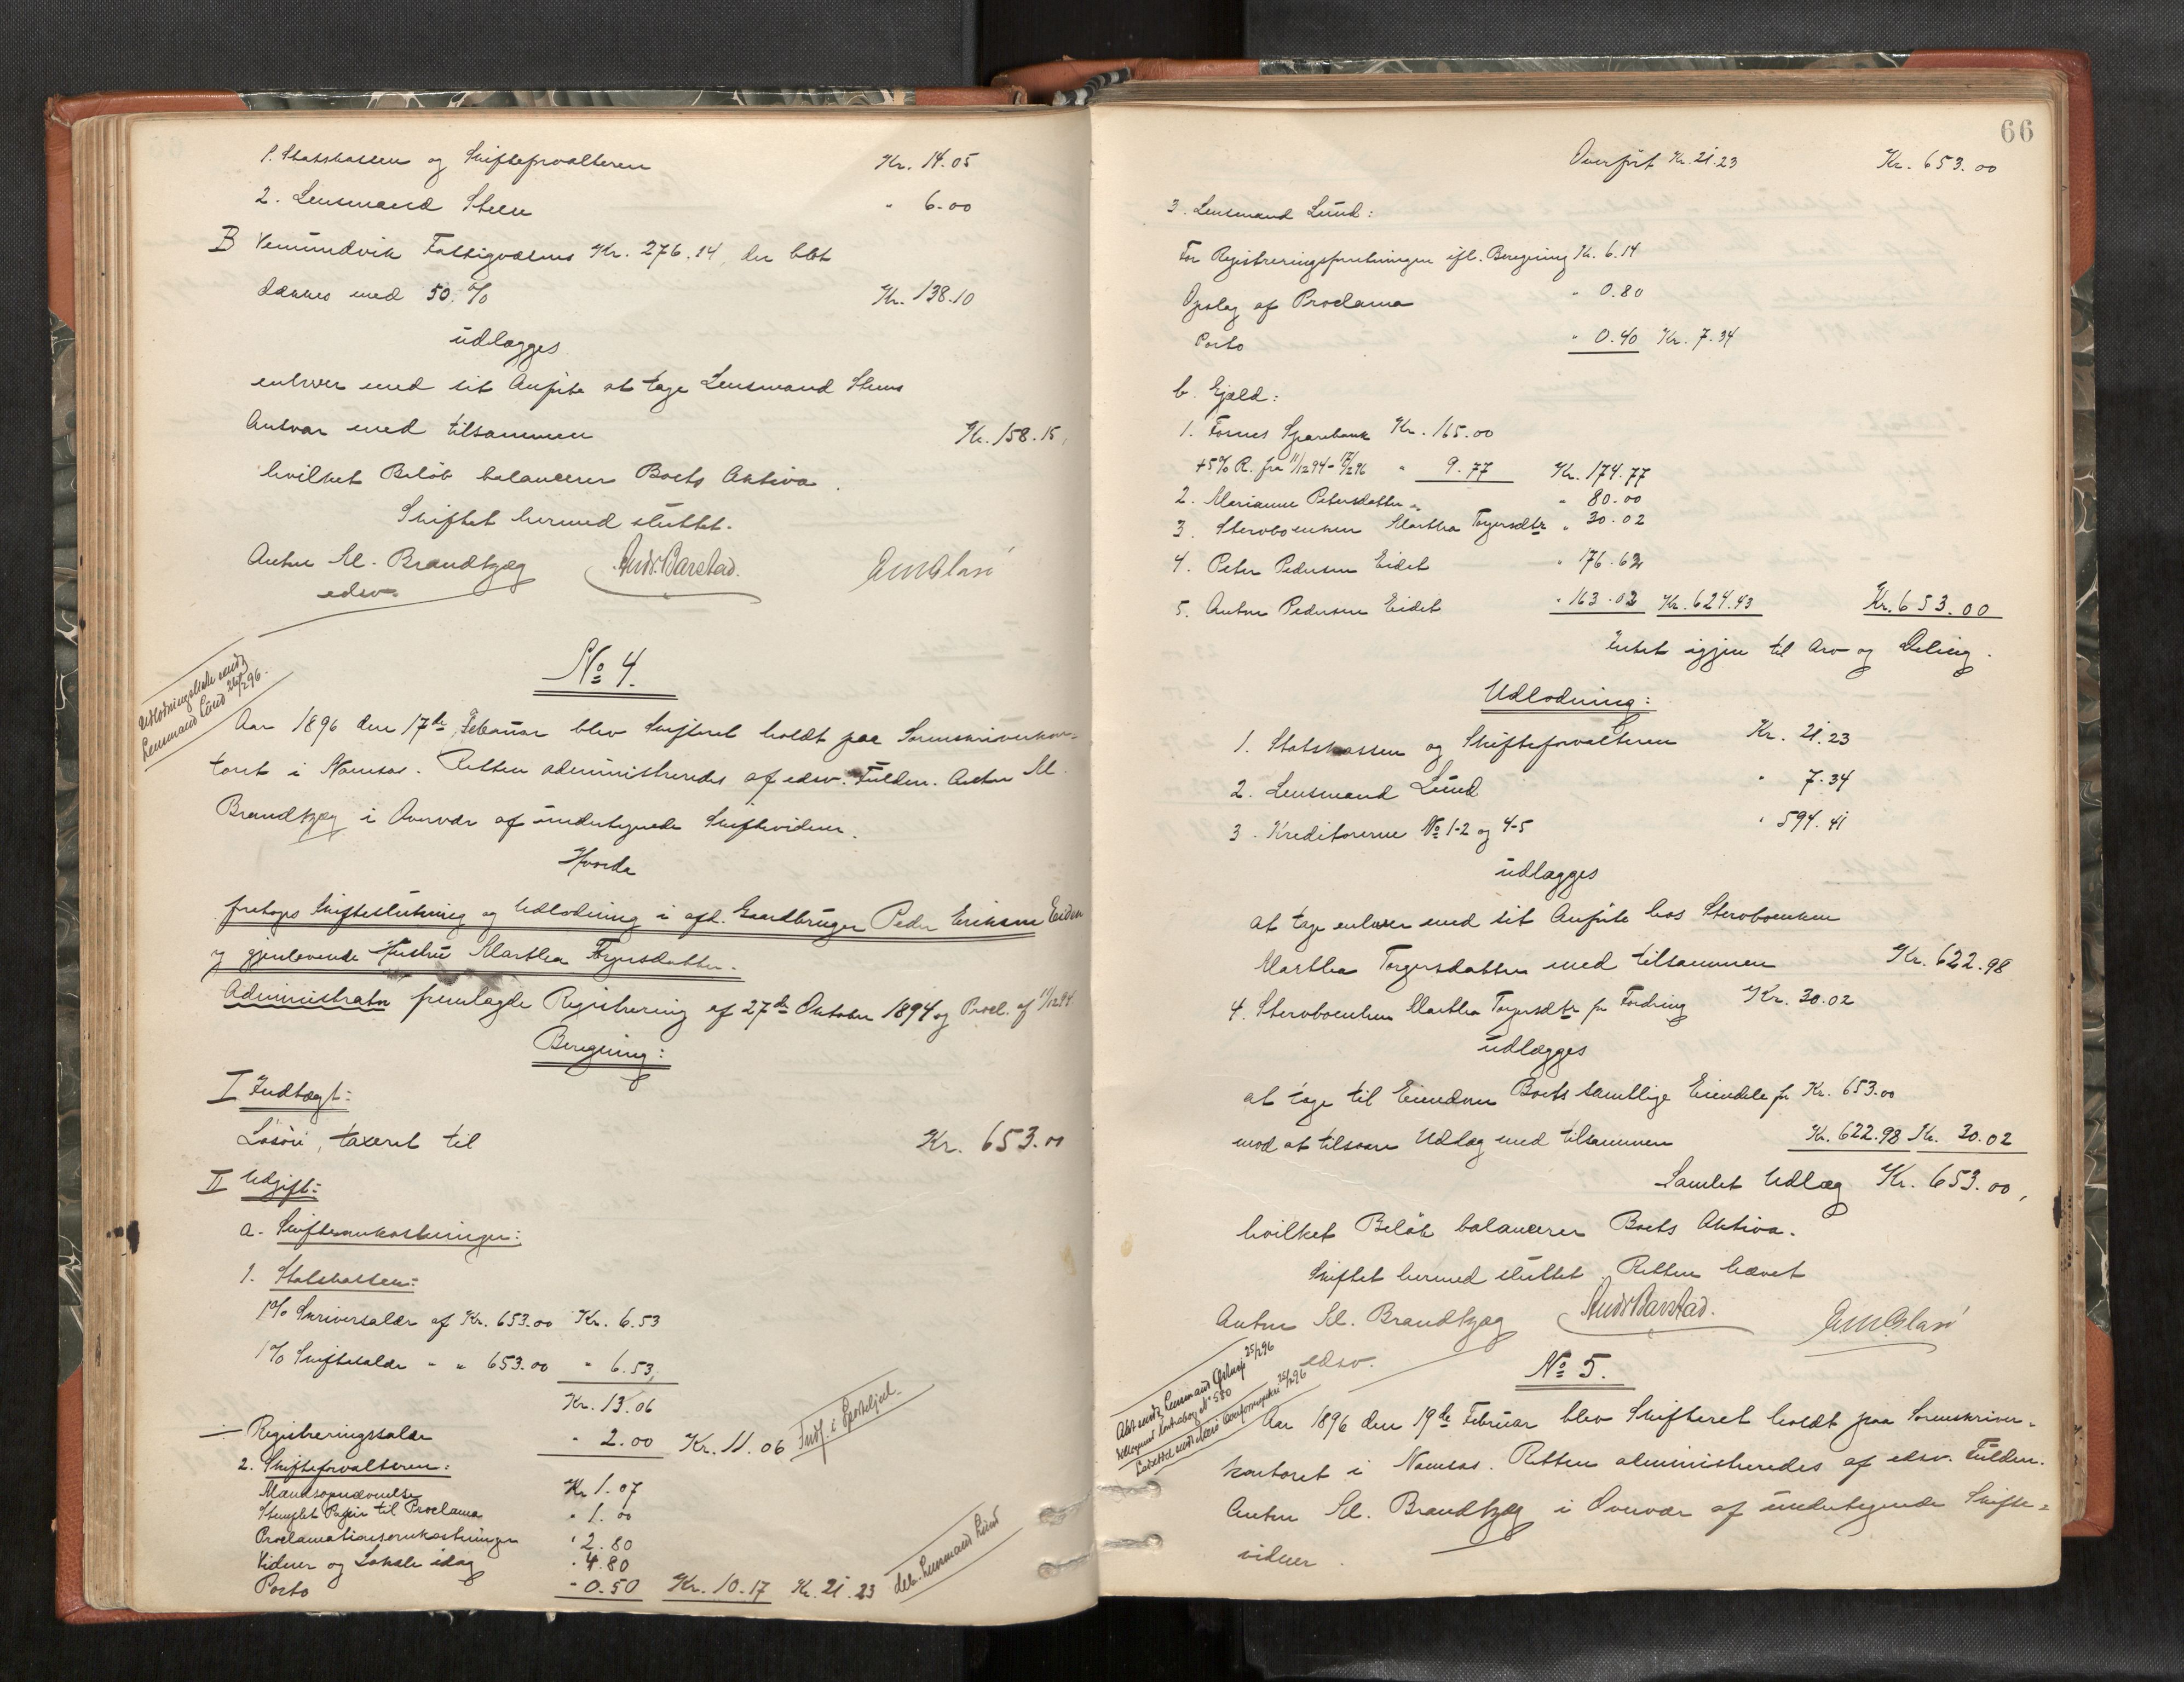 1. Statskassen og Skifteforvalteren Kr. 14.05
2. Lensmand Steen " 6.00
B Vemundvik Fattigvæsens Kr. 276.14, der blot
dækkes med 50 % Kr. 138.10
udlægges
enhver med sit Anførte at tage Lensmand Steens
Ansvar med tilsammen Kr. 158.15,
hvilket Beløb balancerer Boets Aktiva.
Skiftet hermed sluttet.
Anton M. Brandtzæg Andr. Barstad.
edsv.
No 4.
Udlodningsliste sendt
Lensmand Lund 26/2 96.
Aar 1896 den 17de Februar blev Skifteret holdt paa Sorenskriverkon-
toret i Namsos. Retten administreredes af edsv. Fuldm. Anton M.
Brandtzæg i Overvær af undertegnede Skiftevidner.
Hvorda
foretoges Skifteslutning og Udlodning i afd. Gaardbruger Peder Eriksen Eidet
og gjenlevende Hustru Marthea Torgersdatter.
Administrator fremlagde Registrering af 27de Oktober 1894 og Procl. af 11/12 94.
Beregning:
I Indtægt:
Løsøre, taxeret til Kr. 653.00
II Udgift:
a. Skifteomkostninger:
1. Statskassen:
1% Skriversalær af Kr. 653.00 Kr. 6.53
1% Skiftesalær " " 653.00 " 6.53,
Kr. 13.06
÷ Registreringssalær " 2.00 Kr. 11.06 Indf. i Sporteljnal.
2. Skifteforvalteren:
Mandsopnævnelse Kr. 1.07
Stemplet Papir til Proclama " 1.00
Proclamationsomkostninger " 2.80
Vidner og Lokale idag " 4.80
Porto " 0.50 Kr. 10.17 Kr. 21.23
deb. Lensmand Lund
66
Overført Kr. 21.23 Kr. 653.00
3. Lensmand Lund:
For Registreringsforretningen ifl. Beregning Kr. 6.14
Opslag af Proclama " 0.80
Porto " 0.40 Kr. 7.34
b. Gjæld:
1. Fosnes Sparebank Kr. 165.00
+ 5% R. fra 11/12 94 - 17/2 96 " 9.77 Kr. 174.77
2. Marianne Petersdatter " 80.00
3. Stervboenken Marthea Torgersdtr " 30.02
4. Peter Pedersen Eidet " 176.62
5. Anton Pedersen Eidet " 163.02 Kr. 624.43 Kr. 653.00
Intet igjen til Arv og Deling.
Udlodning:
1. Statskassen og Skifteforvalteren Kr. 21.23
2. Lensmand Lund " 7.34
3. Kreditorerne No 1-2 og 4-5 " 594.41
udlægges
at tage enhver med sit Anførte hos Stervboenken
Marthea Torgersdatter med tilsammen Kr. 622.98
4. Stervboenken Marthea Torgersdtr for Fordring Kr. 30.02
udlægges
at tage til Eiendom Boets samtlige Eiendele for Kr. 653.00
mod at tilsvare Udlæg med tilsammen Kr. 622.98 Kr. 30.02
Samlet Udlæg Kr. 653.00,
hvilket Beløb balancerer Boets Aktiva.
Skiftet hermed sluttet. Retten hævet
Anton M. Brandtzæg Andr. Barstad.
edsv.
No 5.
Lensmand 25/2 96
No 580
25/2 96
Aar 1896 den 19de Februar blev Skifteret holdt paa Sorenskriver-
kontoret i Namsos. Retten administreredes af edsv. Fuldm.
Anton M. Brandtzæg i Overvær af undertegnede Skifte-
vidner.